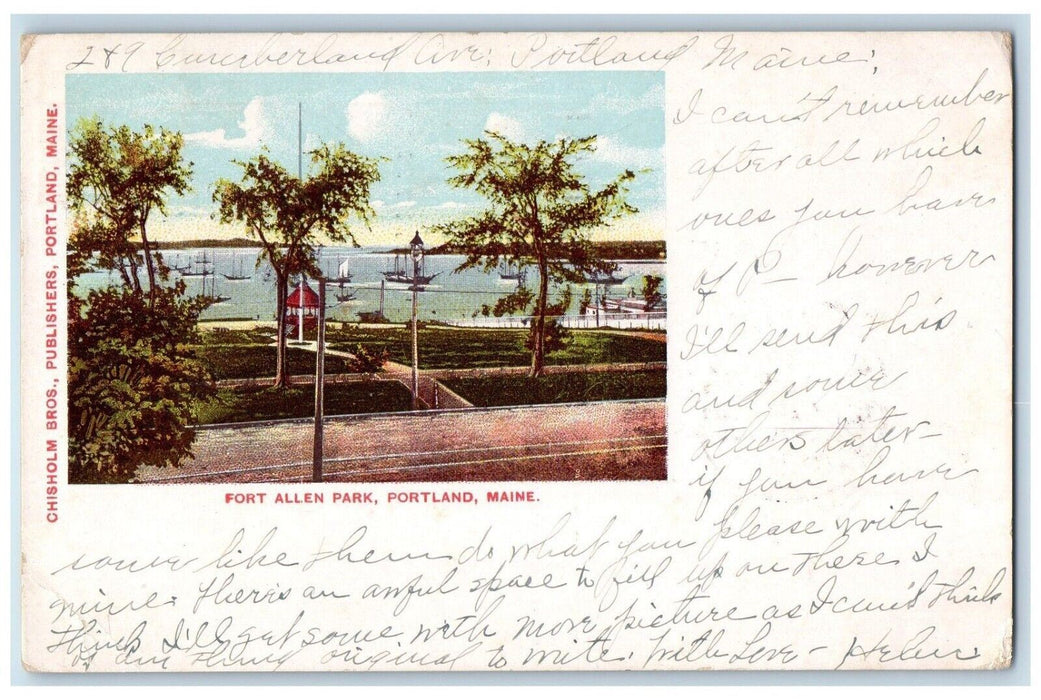 249 Cumberland Ave; Portland Maine;
CHISHOLM BROS., PUBLISHERS, PORTLAND, MAINE.
FORT ALLEN PARK, PORTLAND, MAINE.
I can't remember
after all which
ones you have
of P— however
I'll send this
and some
others later—
if you have
some like them do what you please with
mine. There's an awful space to fill up on these I
think I'll get some with more picture as I can't think
of any thing original to write. With Love— Helen